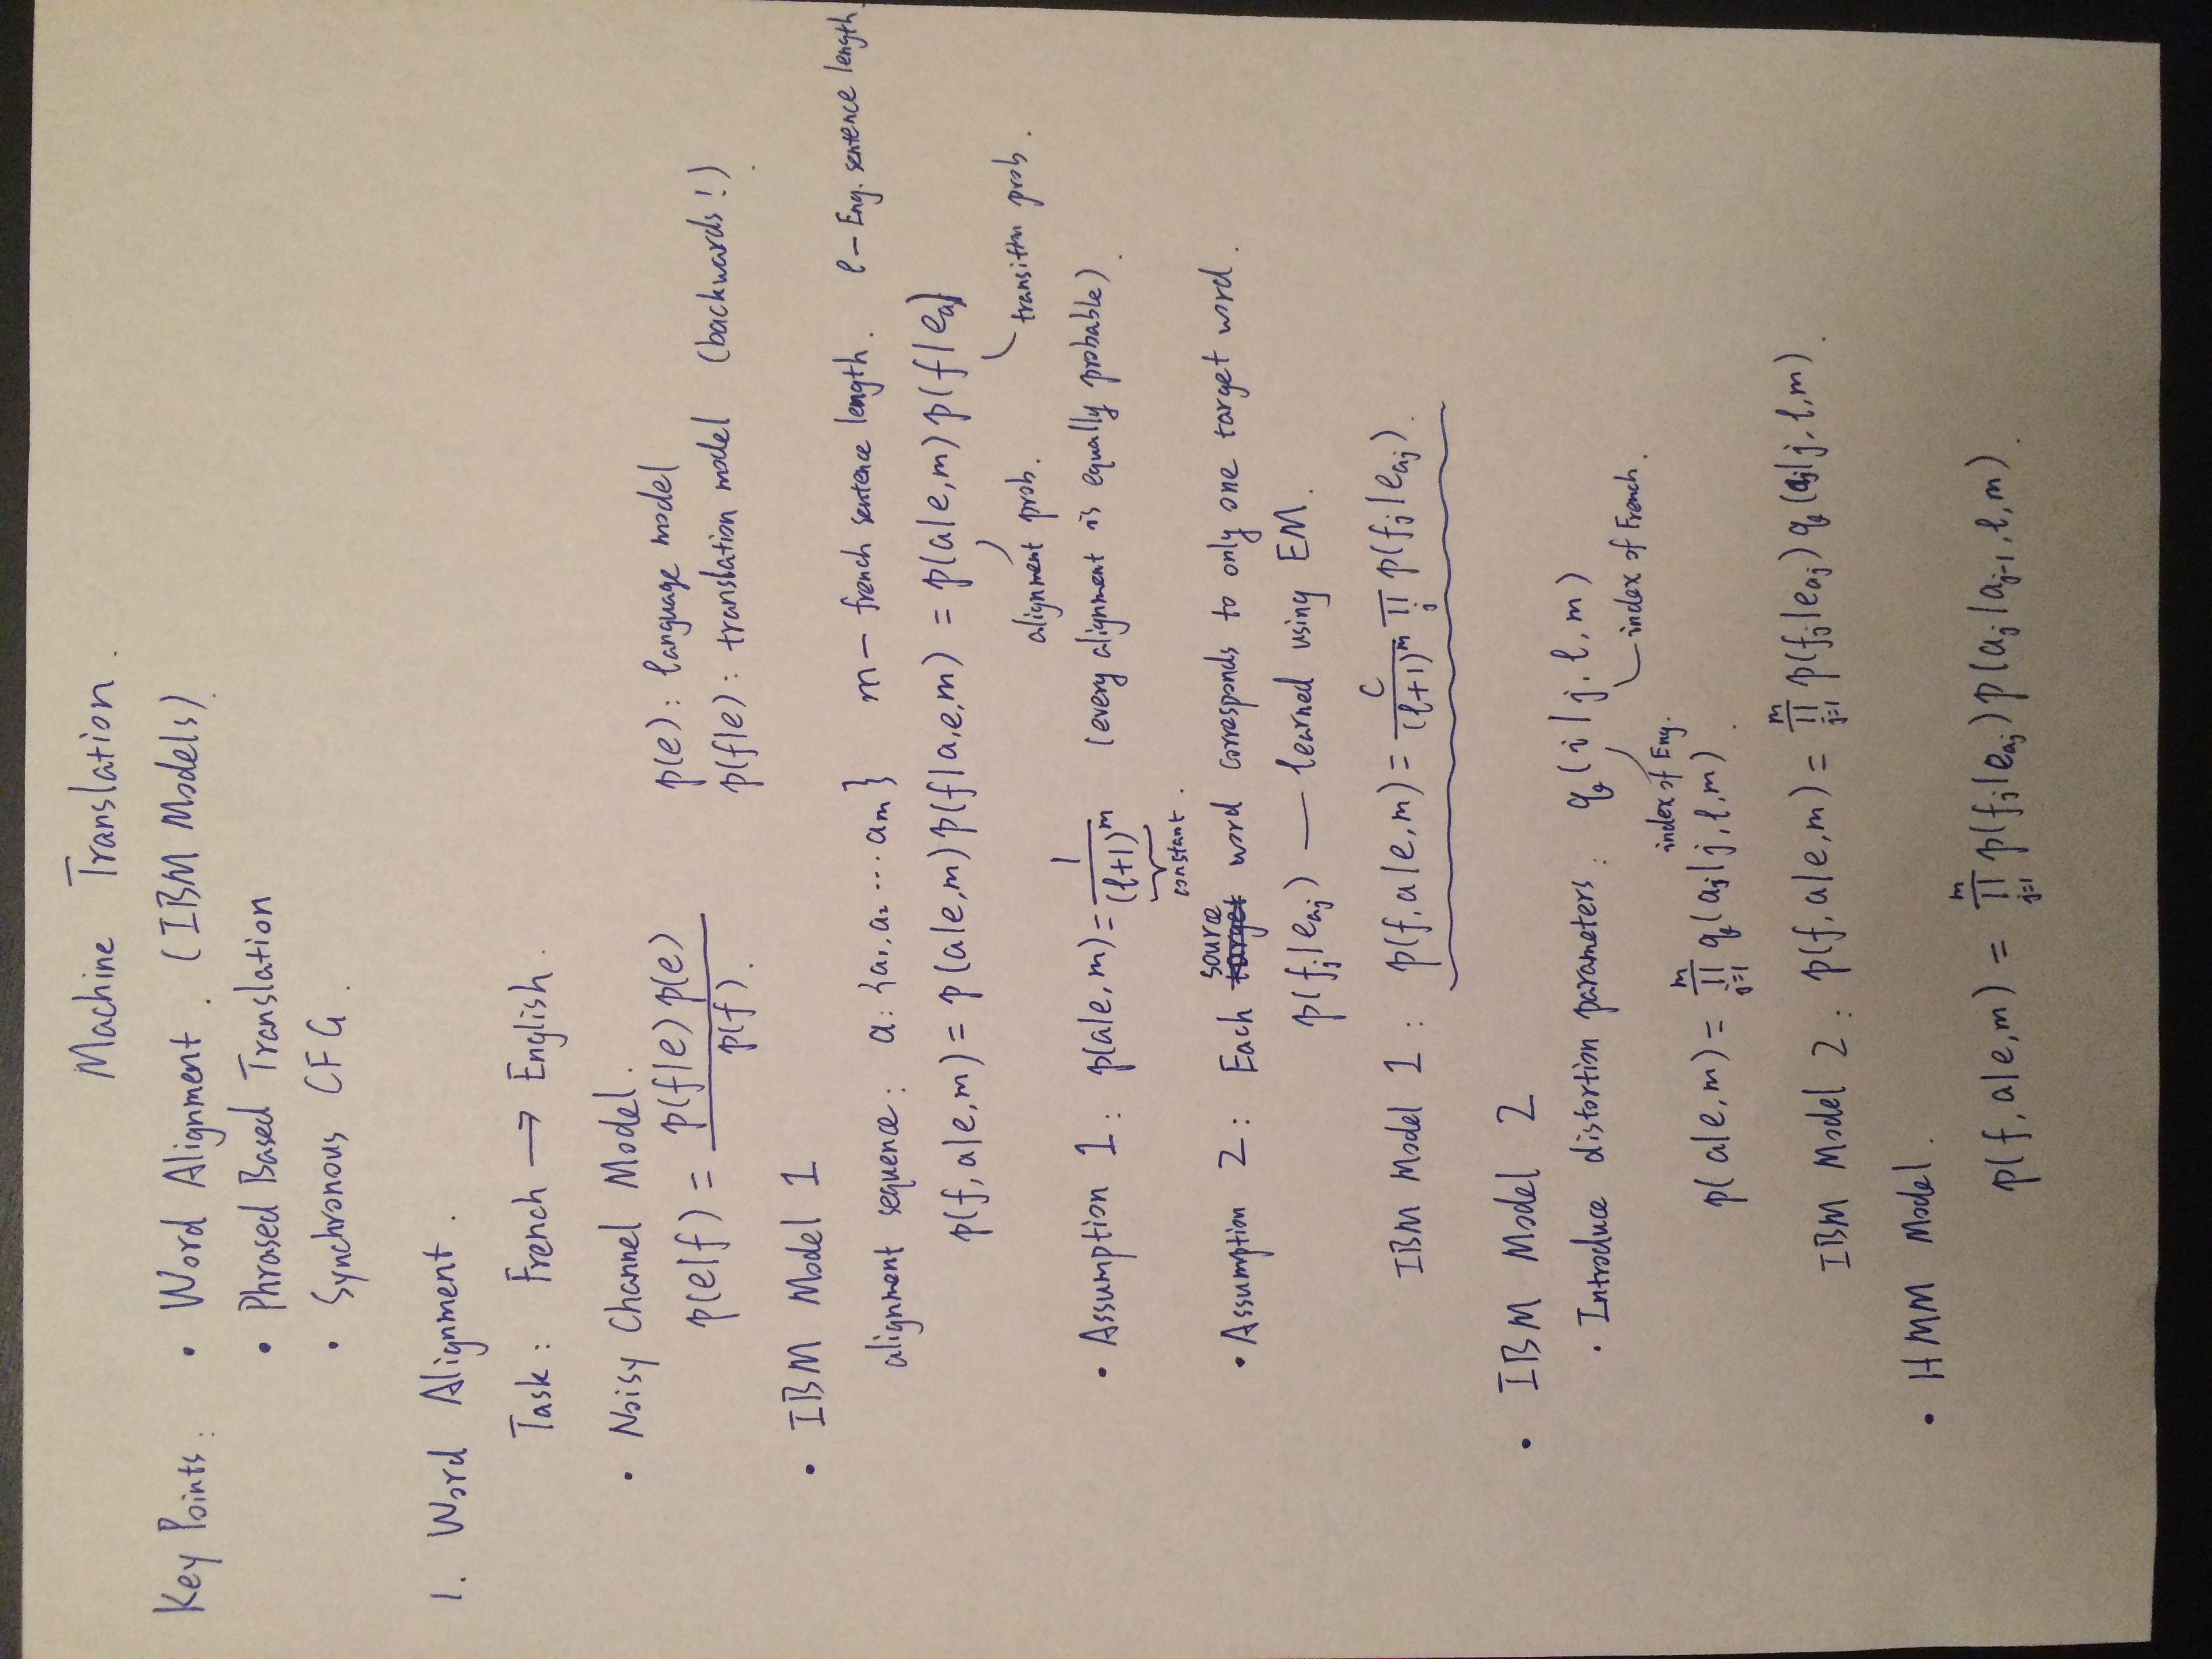 Machine Translation.
Key Points: • Word Alignment. (IBM Models)
• Phrased Based Translation
• Synchronous CFG.
1. Word Alignment.
Task: French → English.
• Noisy Channel Model.
p(e|f) = p(f|e) p(e) / p(f).
p(e): language model
p(f|e): translation model (backwards!)
• IBM Model 1
alignment sequence: a: {a₁, a₂ ... aₘ} m — french sentence length. ℓ — Eng. sentence length.
p(f, a|e, m) = p(a|e, m) p(f|a, e, m) = p(a|e, m) p(f|e_a)
alignment prob. transition prob.
• Assumption 1: p(a|e, m) = 1 / (ℓ+1)^m (every alignment is equally probable).
constant.
• Assumption 2: Each target source word corresponds to only one target word.
p(f_j|e_{a_j}) — learned using EM.
IBM Model 1: p(f, a|e, m) = C / (ℓ+1)^m ∏_j p(f_j|e_{a_j}).
• IBM Model 2
• Introduce distortion parameters: q(i|j, ℓ, m)
index of Eng. index of French.
p(a|e, m) = ∏_{j=1}^m q(a_j|j, ℓ, m).
IBM Model 2: p(f, a|e, m) = ∏_{j=1}^m p(f_j|e_{a_j}) q(a_j|j, ℓ, m).
• HMM Model.
p(f, a|e, m) = ∏_{j=1}^m p(f_j|e_{a_j}) p(a_j|a_{j-1}, ℓ, m).